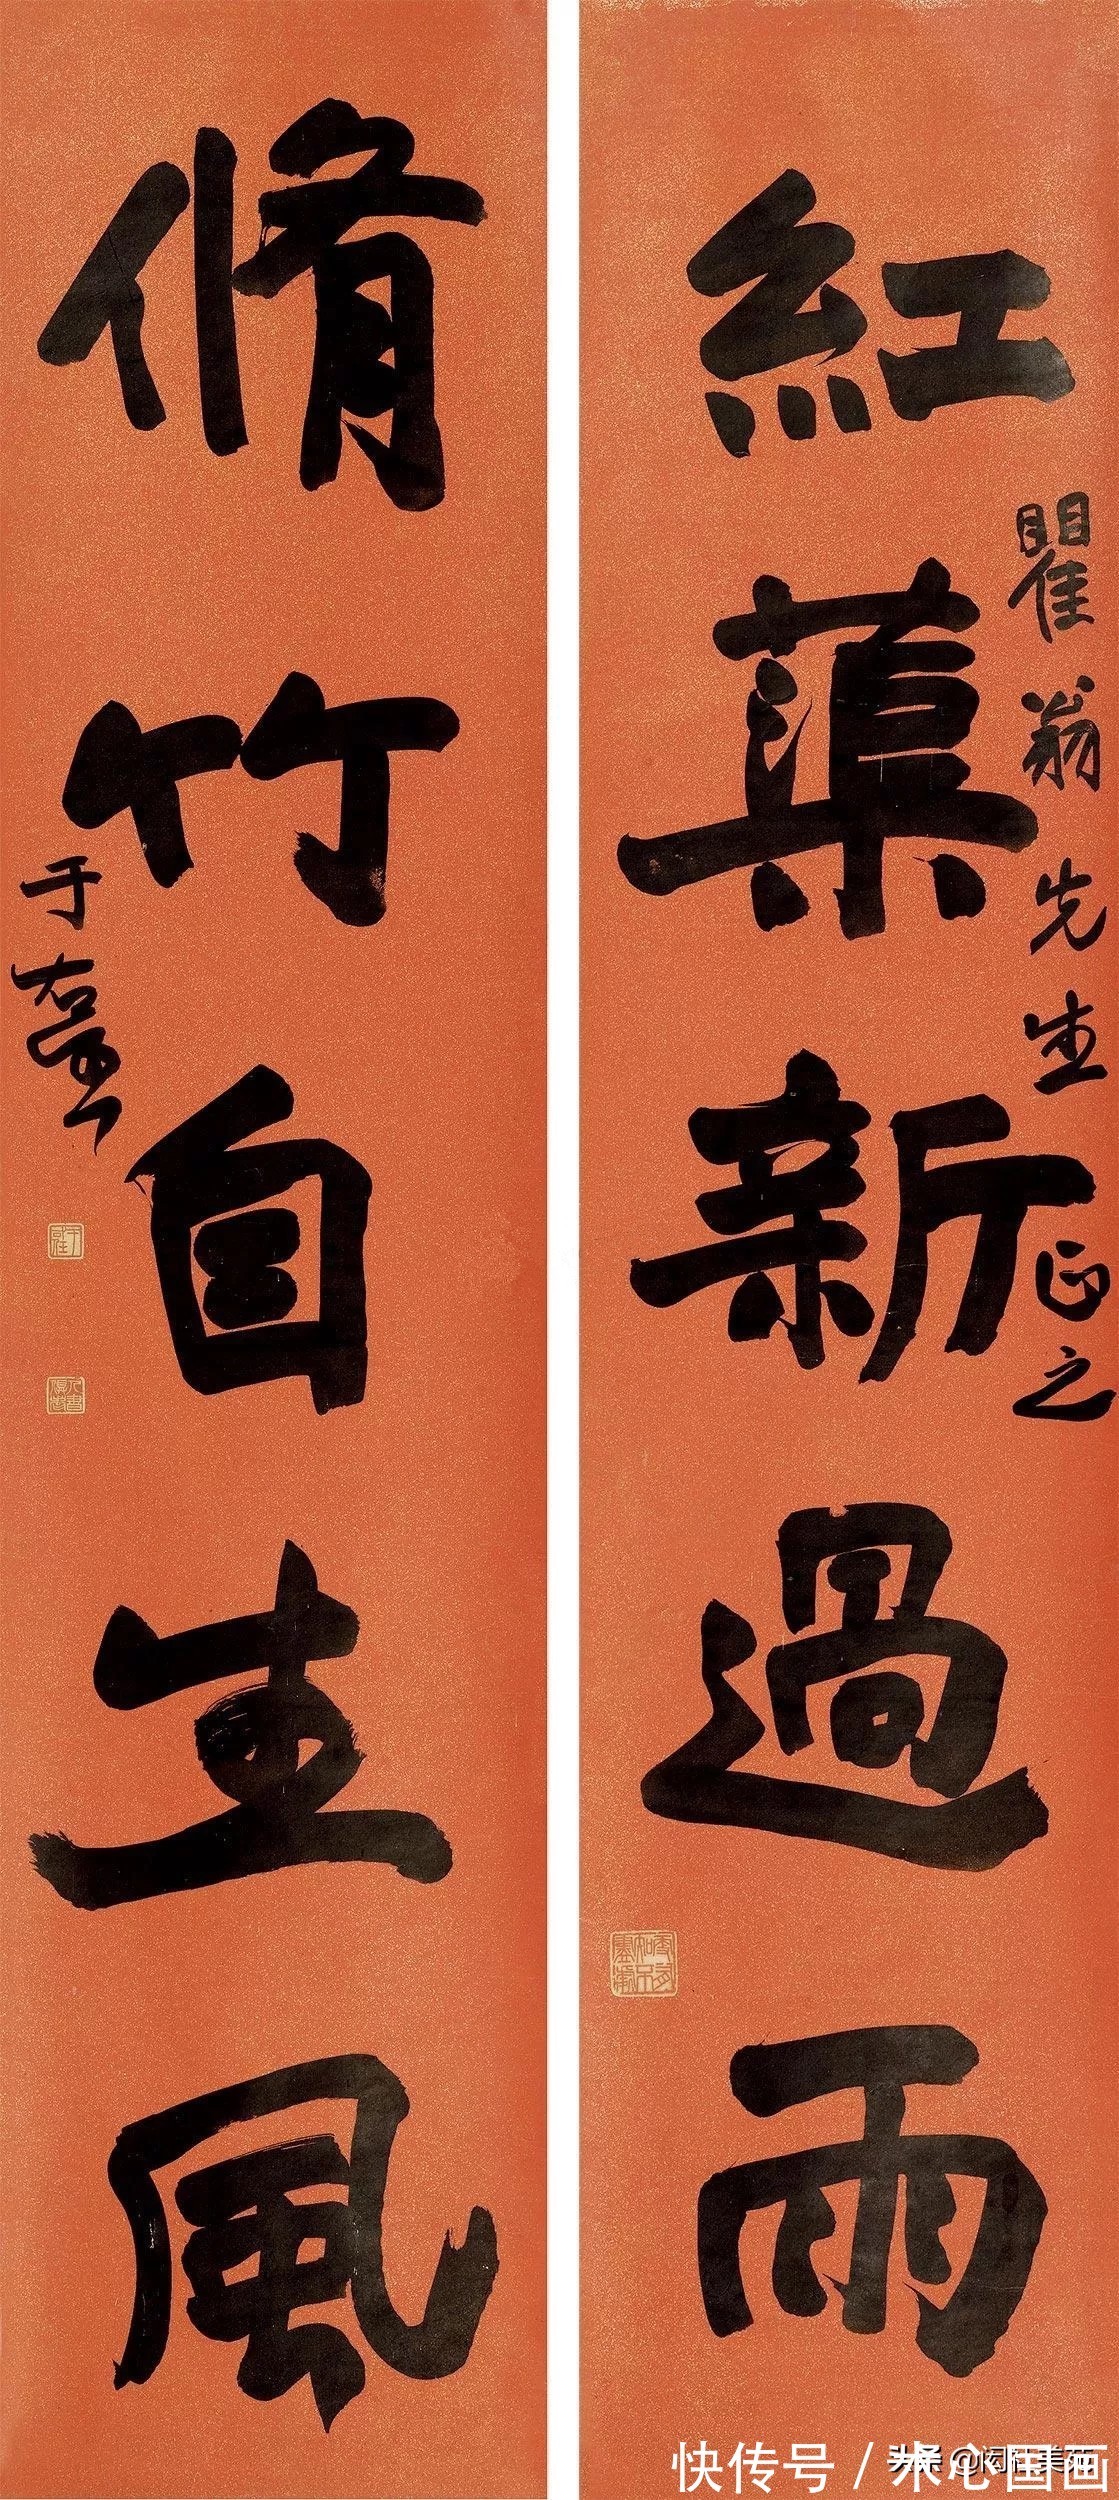 紅蕖新過雨
瞿翁先生正之
脩竹自生風
于
快传号 / 心国画